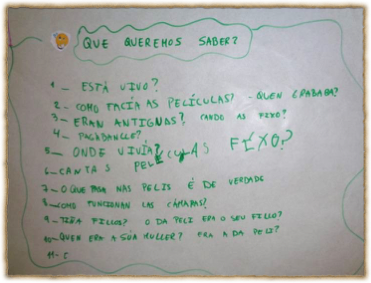 QUE QUEREMOS SABER?
1- ESTÁ VIVO?
2- COMO FACÍA AS PELÍCULAS? - QUEN GRABABA?
3- ERAN ANTIGUAS? CANDO AS FIXO?
4-
5- ONDE VIVÍA?
6- CANTAS PELÍCULAS FÍXO?
7- O QUE PASA NAS PELIS É DE VERDADE
8- COMO FUNCIONAN LAS CÁMARAS?
9- TIÑA FILLOS? O DA PELI ERA O SEU FILLO?
10- QUEN ERA A SÚA MULLER? ERA A DA PELI?
11-